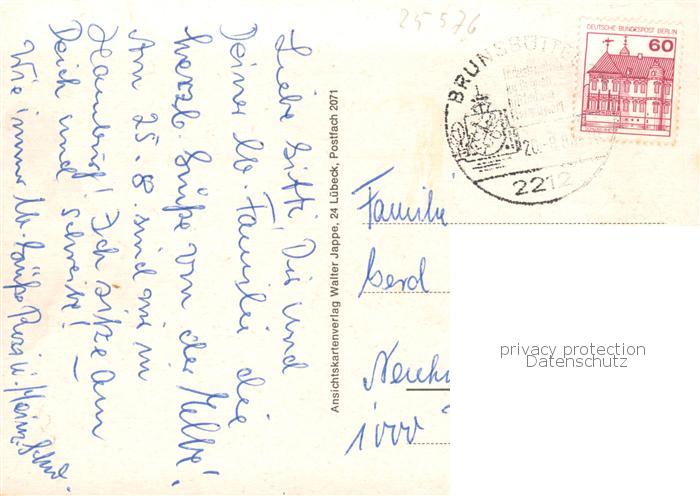 25576
Liebe Gitti, Dir und
Deiner lb. Familie die
herzl. Grüße von der Melbe!
Am 25.8. sind wir in
Hamburg! Ich sitze am
Deich und schreibe!
Wie immer lb. Grüße Rosi u. Heinz
Ansichtskartenverlag Walter Jappe, 24 Lübeck, Postfach 2071
BRUNSBÜTTE
20.-9.8
2212
DEUTSCHE BUNDESPOST BERLIN
60
Familie
Gerd
1000
privacy protection
Datenschutz